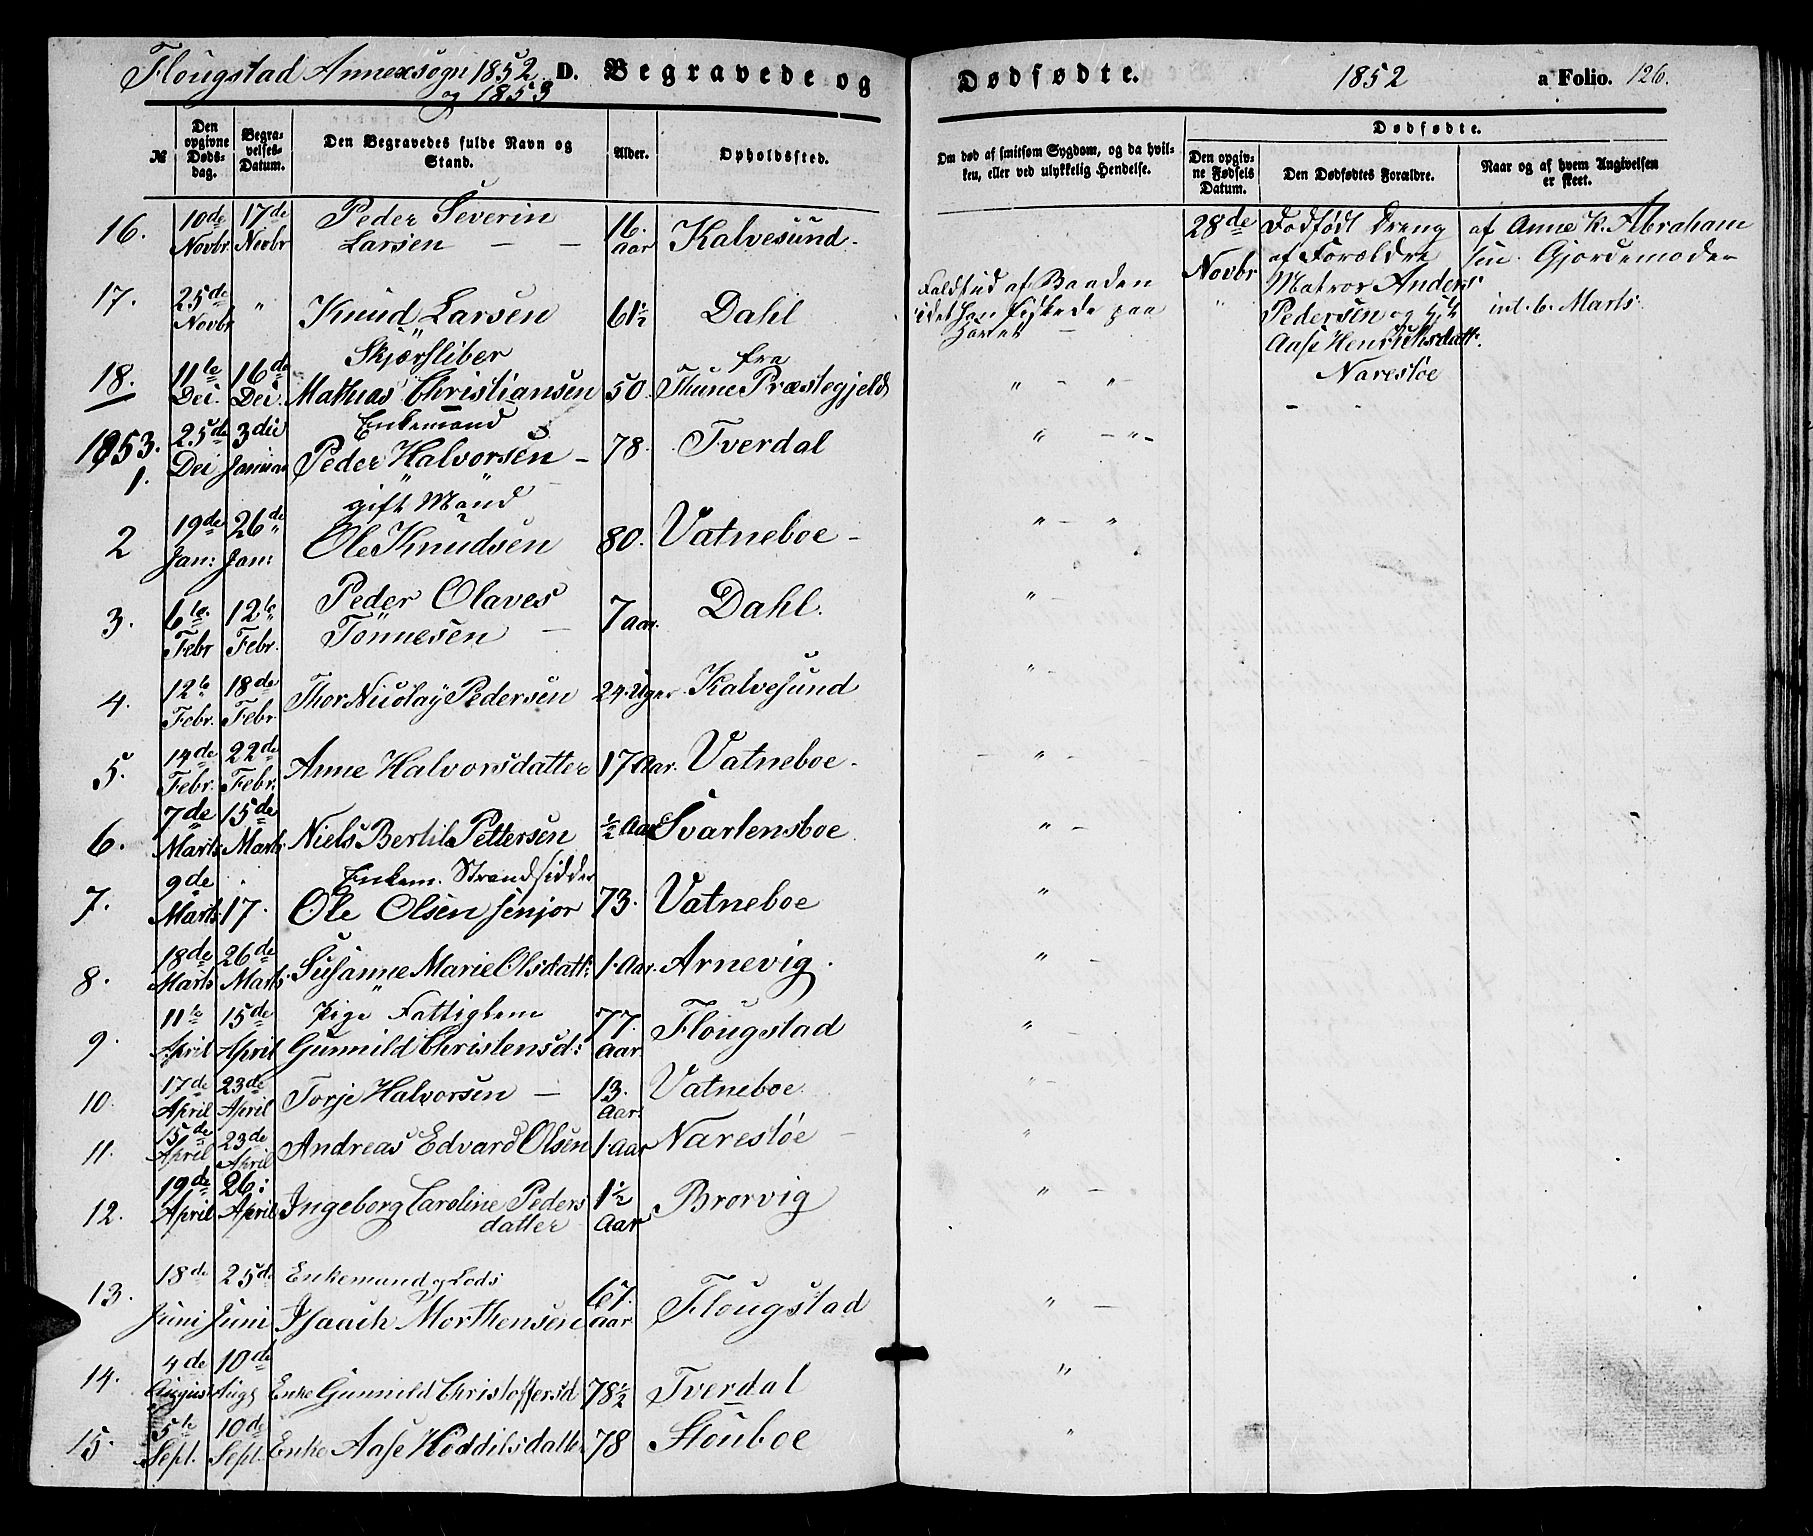 Flougstad Annexsogn 1852 D. Begravede og Dødfødte. 1852 a Folio. 126.
og 1853
№ | Den opgivne Dødsdag. | Begravelses-Datum. | Den Begravedes fulde Navn og Stand. | Alder. | Opholdssted. | Om død af smitsom Sygdom, og da hvilken, eller ved ulykkelig Hendelse. | Dødfødte. | Den opgivne Fødsels Datum. | Den Dødfødtes Forældre. | Naar og af hvem Angivelsen er skeet.
16. 10de Novbr 17de Novbr Peder Severin
Larsen — — 16. aar Kalvesund.
28de Novbr Dødfødt Dreng
af Forældre
Matros Anders
Pedersen og
Aase Henriksdatt.
Narestøe
af Anne K. Abraham
sen. Gjordemoder
int. 6. Marts.
17. 25de Novbr " Knud Larsen 61½ Dahl
Faldt ud af Baaden
idet han fiskede paa
Havet —
Skjærsliber
18. 11te Dec. 16de Dec. Mathias Christiansen 50. fra Thune Præstegjeld " — "
Enkemand
1853.
1. 25de Dec 3die Januar Peder Halvorsen — 78. Tverdal " — " —
gift Mand
2 19de Jan: 26de Jan: Ole Knudsen 80. Vatneboe — " — "
3. 6te Febr 12te Febr. Peder Olaves
Tönnesen — 7 aar. Dahl. " —
4. 12te Febr. 18de Febr. Thor Nicolay Pedersen 24 Uger Kalvesund " —
5. 14de Febr. 22de Febr. Anne Halvorsdatter 17 Aar. Vatneboe. — " —
6. 7de Marts 15de Marts Niels Bertil Pettersen ½ Aar Svartensboe " —
Enkem. Strandsidder
7. 9de Marts 17. Ole Olsen senjor 73. Vatneboe "
8. 18de Marts 26de Marts Susanne Marie Olsdatt: 1. Aar. Arnevig. " —
Pige Fattiglem
9. 11te April 15de April Gunnild Christensd: 77. aar Flougstad " —
10. 17de April 23de April Torje Halvorsen — 13. Aar. Vatneboe. " —
11. 15de April 23de April Andreas Edvard Olsen 1. Aar Narestöe — "
12. 19de April 26: April Ingeborg Caroline Peders
datter 1½ Aar Brorvig " —
Enkemand og Lods
13. 18de Juni 25de Juni Isaach Morthensen 67. aar Flougstad " —
14. 4de August 10de Augs Enke Gunnild Christoffersd 78½ Tverdal "
15. 5te Sept. 10de Sept. Enke Aase Hoddilsdatte 78 Stouboe "